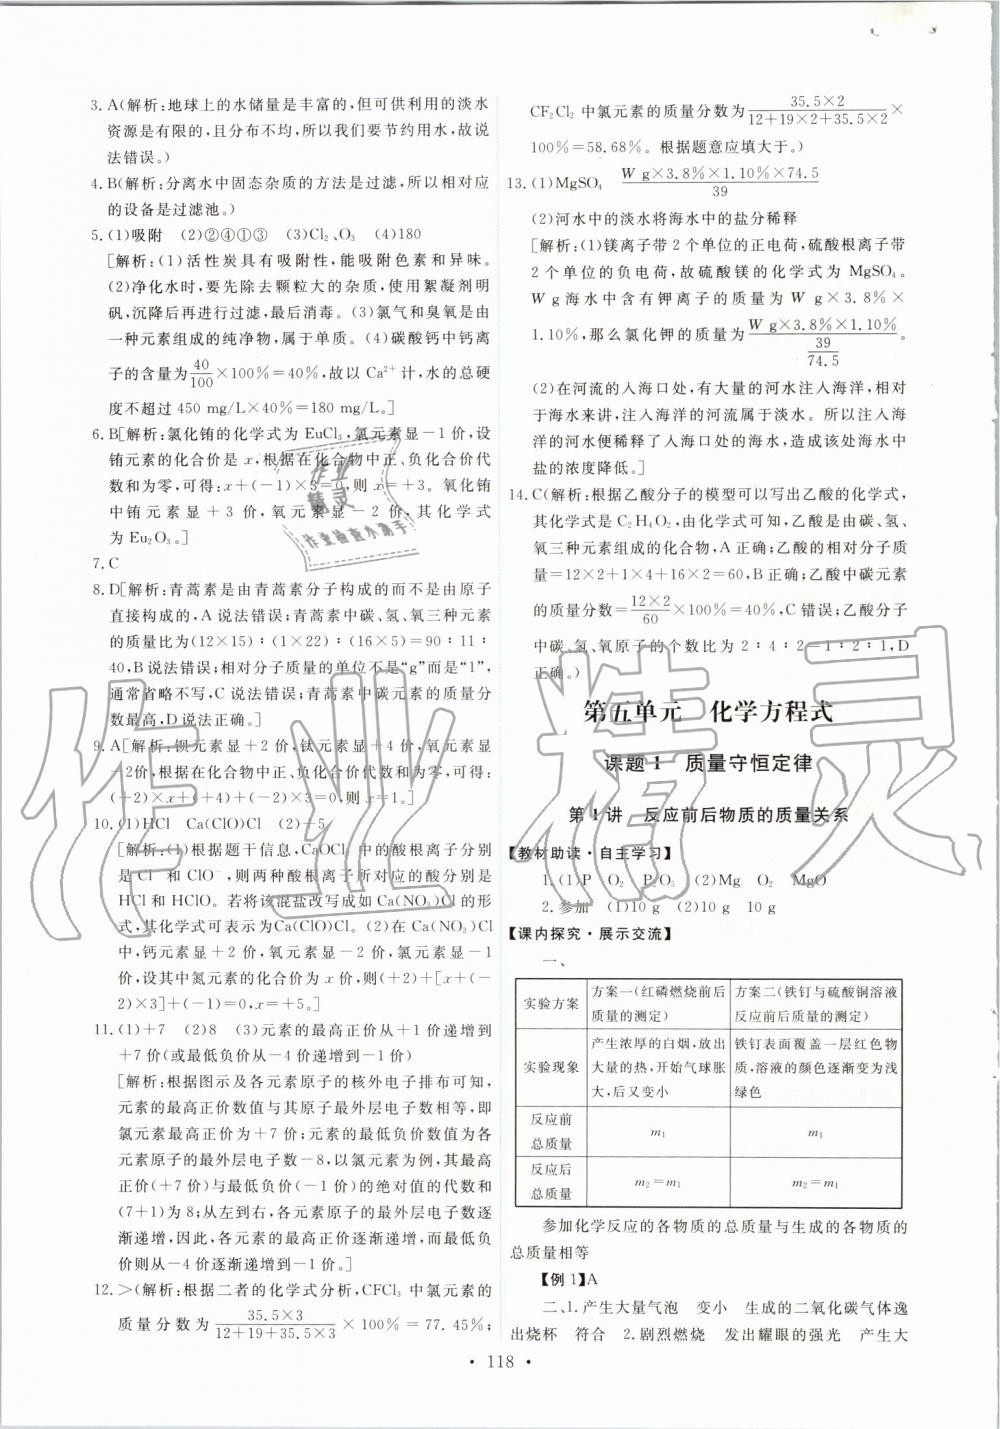 3. A(解析:地球上的水储量是丰富的,但可供利用的淡水
资源是有限的,且分布不均,所以我们要节约用水,故说
法错误。)
4. B(解析:分离水中固态杂质的方法是过滤,所以相对应
的设备是过滤池。)
5. (1)吸附 (2)②④①③ (3)Cl₂、O₃ (4)180
[解析:(1)活性炭具有吸附性,能吸附色素和异味。
(2)净化水时,要先除去颗粒大的杂质,使用絮凝剂明
矾,沉降后再进行过滤,最后消毒。(3)氯气和臭氧是由
一种元素组成的纯净物,属于单质。(4)碳酸钙中钙离
子的含量为40/100×100%=40%,故以 Ca²⁺计,水的总硬
度不超过 450 mg/L×40%=180 mg/L。]
6. B[解析:氯化铕的化学式为 EuCl₃,氯元素显-1价,设
铕元素的化合价是 x,根据在化合物中正、负化合价代
数和为零,可得:x+(-1)×3=0,则 x=+3。氧化铕
中铕元素显+3价,氧元素显-2价,其化学式
为 Eu₂O₃。]
7. C
8. D[解析:青蒿素是由青蒿素分子构成的而不是由原子
直接构成的,A说法错误;青蒿素中碳、氢、氧三种元素
的质量比为(12×15)∶(1×22)∶(16×5)=90∶11∶
40,B说法错误;相对分子质量的单位不是“g”而是“1”,
通常省略不写,C说法错误;青蒿素中碳元素的质量分
数最高,D说法正确。]
9. A[解析:钡元素显+2价,钛元素显+4价,氧元素显
-2价,根据在化合物中正、负化合价代数和为零,可得:
(+2)×x+(+4)+(-2)×3=0,则 x=1。]
10. (1)HCl Ca(ClO)Cl (2)+5
[解析:(1)根据题干信息,CaOCl₂中的酸根离子分别
是 Cl⁻和 ClO⁻,则两种酸根离子所对应的酸分别是
HCl 和 HClO。若将该混盐改写成如 Ca(NO₃)Cl 的形
式,其化学式可表示为Ca(ClO)Cl。(2)在 Ca(NO₃)Cl
中,钙元素显+2价,氧元素显-2价,氯元素显-1
价,设其中氮元素的化合价为 x 价,则(+2)+[x+(-
2)×3]+(-1)=0,x=+5。]
11. (1)+7 (2)8 (3)元素的最高正价从+1价递增到
+7价(或最低负价从-4价递增到-1价)
[解析:根据图示及各元素原子的核外电子排布可知,
元素的最高正价数值与其原子最外层电子数相等,即
氯元素最高正价为+7价;元素的最低负价数值为各
元素原子的最外层电子数-8,以氯元素为例,其最高
正价(+7价)与最低负价(-1价)的绝对值的代数和
(7+1)为8;从左到右,各元素原子的最外层电子数逐
渐递增,因此,各元素的最高正价逐渐递增,而最低负
价则从-4价逐渐递增到-1价。]
12. >(解析:根据二者的化学式分析,CFCl₃中氯元素的
质量分数为35.5×3/(12+19+35.5×3)×100%=77.45%;
CF₂Cl₂中氯元素的质量分数为35.5×2/(12+19×2+35.5×2)×
100%=58.68%。根据题意应填大于。)
13. (1)MgSO₄ W g×3.8%×1.10%×74.5/39
(2)河水中的淡水将海水中的盐分稀释
[解析:(1)镁离子带2个单位的正电荷,硫酸根离子带
2个单位的负电荷,故硫酸镁的化学式为 MgSO₄。
W g海水中含有钾离子的质量为 W g×3.8%×
1.10%,那么氯化钾的质量为W g×3.8%×1.10%/(39/74.5)。
(2)在河流的入海口处,有大量的河水注入海洋,相对
于海水来讲,注入海洋的河流属于淡水。所以注入海
洋的河水便稀释了入海口处的海水,造成该处海水中
盐的浓度降低。]
14. C(解析:根据乙酸分子的模型可以写出乙酸的化学式,
其化学式是 C₂H₄O₂,由化学式可知,乙酸是由碳、氢、
氧三种元素组成的化合物,A正确;乙酸的相对分子质
量=12×2+1×4+16×2=60,B正确;乙酸中碳元素
的质量分数=12×2/60×100%=40%,C错误;乙酸分子
中碳、氢、氧原子的个数比为2∶4∶2=1∶2∶1,D
正确。)
第五单元 化学方程式
课题1 质量守恒定律
第1讲 反应前后物质的质量关系
【教材助读·自主学习】
1. (1)P O₂ P₂O₅ (2)Mg O₂ MgO
2. 参加 (1)10 g (2)10 g 10 g
【课内探究·展示交流】
一、
实验方案 方案一(红磷燃烧前后质量的测定) 方案二(铁钉与硫酸铜溶液反应前后质量的测定)
实验现象 产生浓厚的白烟,放出大量的热,开始气球胀大,后又变小 铁钉表面覆盖一层红色物质,溶液的颜色逐渐变为浅绿色
反应前总质量 m₁ m₁
反应后总质量 m₂=m₁ m₂=m₁
参加化学反应的各物质的总质量与生成的各物质的
总质量相等
【例1】A
二、1.产生大量气泡 变小 生成的二氧化碳气体逸
出烧杯 符合 2.剧烈燃烧 发出耀眼的强光 产生大
• 118 •
作业
精灵
作业检查小助手
作业精灵